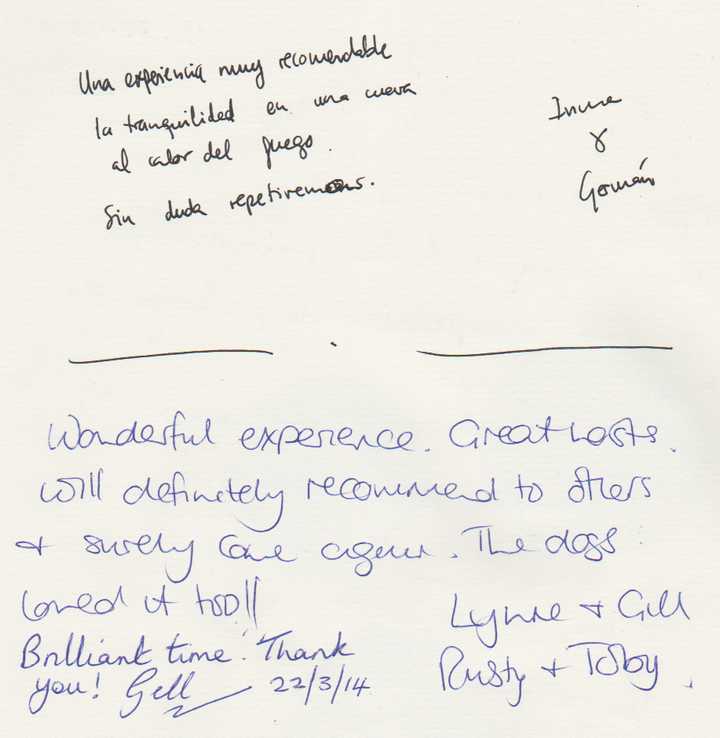 Una experiencia muy recomendable
la tranquilidad en una cueva
al calor del fuego.
Sin duda repetiremos.
y
Germán
Wonderful experience. Great hosts.
Will definetely recommend to others
+ surely come again. The dogs
loved it too!!
Lynne + Gill
Rusty + Toby.
Brilliant time! Thank
you! Gill
22/3/14